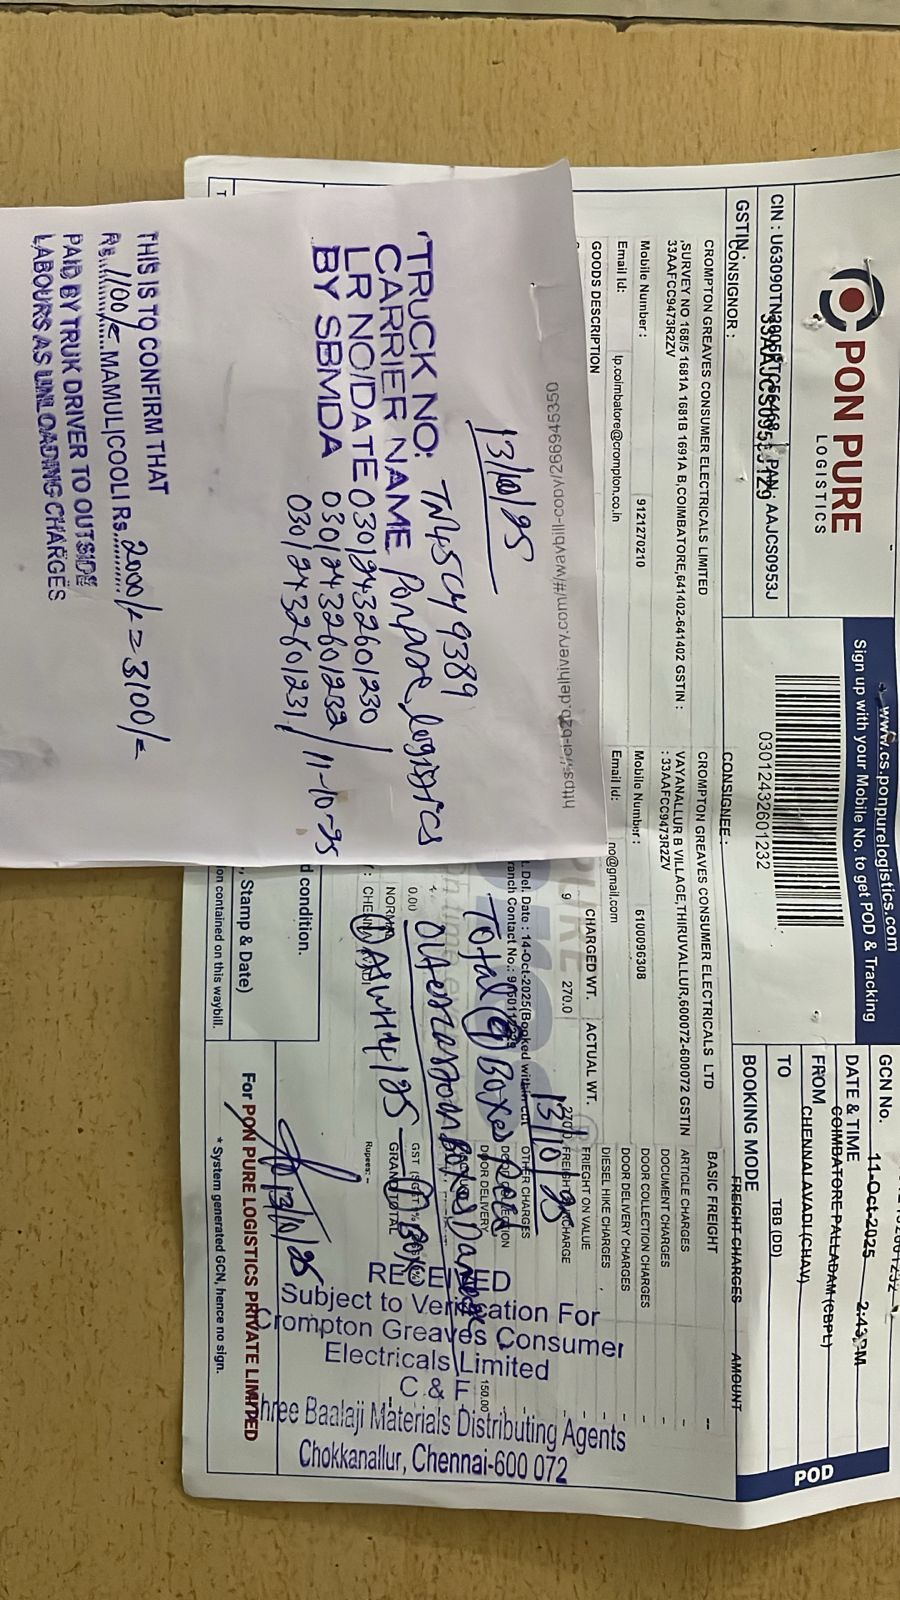 PON PURE
LOGISTICS
www.cs.ponpurelogistics.com
Sign up with your Mobile No. to get POD & Tracking
GCN No.
DATE & TIME
11-Oct-2025
FROM
COIMBATORE PALLADAM (CBPL)
TO
CHENNAI AVADI (CHAV)
BOOKING MODE
TBB (DD)
POD
CIN :
PAN : AAJCS0953J
GSTIN :
03012432601232
CONSIGNOR :
CROMPTON GREAVES CONSUMER ELECTRICALS LIMITED
,SURVEY NO 168/5 1681A 1681B 1691A B,COIMBATORE,641402-641402 GSTIN :
33AAFCC9473R2ZV
Mobile Number :
9121270210
Email Id:
lp.coimbatore@crompton.co.in
CONSIGNEE :
CROMPTON GREAVES CONSUMER ELECTRICALS LTD
VAYANALLUR B VILLAGE,THIRUVALLUR,600072-600072 GSTIN
: 33AAFCC9473R2ZV
Mobile Number :
6100096308
Email Id:
no@gmail.com
FREIGHT CHARGES
AMOUNT
BASIC FREIGHT
--
ARTICLE CHARGES
-
DOCUMENT CHARGES
-
DOOR COLLECTION CHARGES
-
DOOR DELIVERY CHARGES
-
DIESEL HIKE CHARGES
-
FREIGHT ON VALUE
-
OTHER CHARGES
DOOR DELIVERY
150.00
GRAND TOTAL
Rupees:-
GOODS DESCRIPTION
CHARGED WT.
ACTUAL WT.
9
270.0
270.0
. Del. Date : 14-Oct-2025(Booked within cut
ranch Contact No.:
0.00
NORMAL
d condition.
, Stamp & Date)
on contained on this waybill.
For PON PURE LOGISTICS PRIVATE LIMITED
* System generated GCN, hence no sign.
13/10/25
Total 9 Boxes
13/10/25
RECEIVED
Subject to Verification For
Crompton Greaves Consumer
Electricals Limited
C & F
hree Baalaji Materials Distributing Agents
Chokkanallur, Chennai-600 072
13/10/25
TRUCK NO: TN45CY9389
CARRIER NAME Ponpure logistics
LR NO/DATE 03012432601230
BY SBMDA 03012432601232 / 11-10-25
03012432601231
THIS IS TO CONFIRM THAT
Rs. 1100/- MAMUL|COOLI Rs. 2000/- = 3100/-
PAID BY TRUK DRIVER TO OUTSIDE
LABOURS AS UNLOADING CHARGES